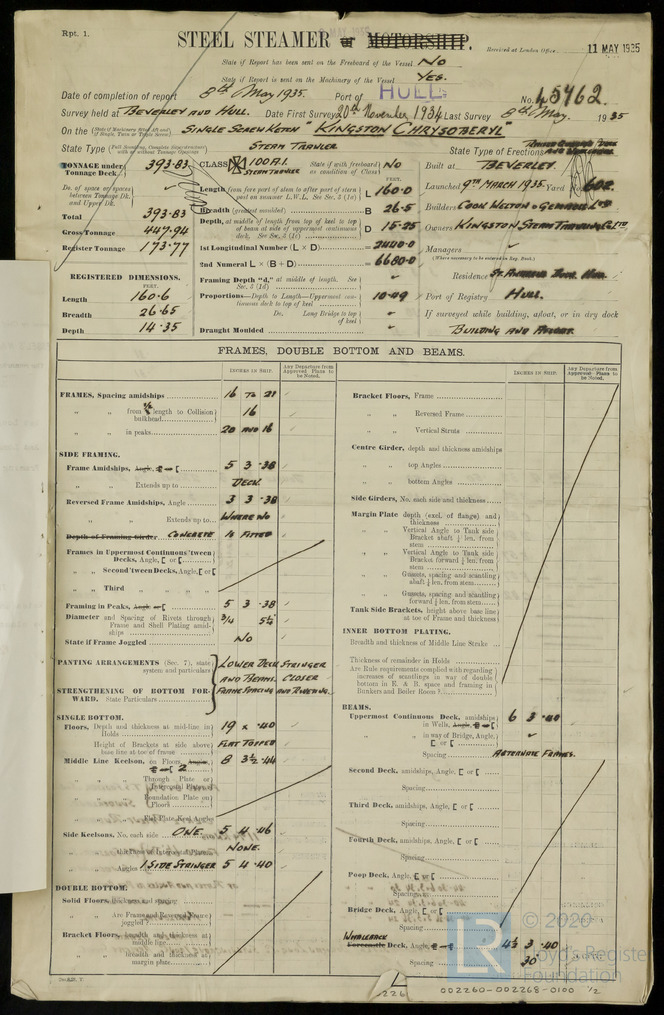 Rpt. 1.
STEEL STEAMER or MOTORSHIP.
Received at London Office 11 MAY 1935
State if Report has been sent on the Freeboard of the Vessel NO
State if Report is sent on the Machinery of the Vessel YES.
Date of completion of report 8th May 1935. Port of HULL No. 45962.
Survey held at BEVERLEY AND HULL. Date First Survey 20th November 1934 Last Survey 8th May. 1935
On the SINGLE SCREW KETCH "KINGSTON CHRYSOBERYL"
State Type STEAM TRAWLER State Type of Erections
TONNAGE under Tonnage Deck 393.83
CLASS 100 A1. STEAM TRAWLER State if with freeboard NO
Built at BEVERLEY.
Do. of space or spaces between Tonnage Dk. and Upper Dk.
Length from fore part of stem to after part of stern post on summer L.W.L. See Sec. 3 (1a) L 160.0
Launched 9TH MARCH 1935. Yard No. 602.
Total 393.83
Breadth (greatest moulded) B 26.5
Builders COOK WELTON & GEMMELL LTD
Gross Tonnage 447.94
Depth, at middle of length from top of keel to top of beam at side of uppermost continuous deck, See Sec. 3 (1c) D 15.25
Owners KINGSTON STEAM TRAWLING Co LTD
Register Tonnage 173.77
1st Longitudinal Number (L × D) = 2440.0
Managers
(Where necessary to be entered in Reg. Book.)
2nd Numeral L × (B + D) = 6680.0
Residence ST. ANDREWS DOCK HULL
REGISTERED DIMENSIONS.
FEET.
Framing Depth "d," at middle of length. See Sec. 3 (1d)
Length 160.6
Proportions—Depth to Length—Uppermost continuous deck to top of keel 10.49
Port of Registry HULL.
Breadth 26.65
Do. Long Bridge to top of keel
If surveyed while building, afloat, or in dry dock
Depth 14.35
Draught Moulded
BUILDING AND AFLOAT
FRAMES, DOUBLE BOTTOM AND BEAMS.
INCHES IN SHIP. Any Departure from Approved Plans to be Noted.
INCHES IN SHIP. Any Departure from Approved Plans to be Noted.
FRAMES, Spacing amidships 16 TO 21
" " from 3/5 length to Collision bulkhead 16
" " in peaks 20 AND 16
SIDE FRAMING.
Frame Amidships, Angle, 5 3 .38
" " Extends up to DECK.
Reversed Frame Amidships, Angle 3 3 .38
" " Extends up to WHERE NO
Depth of Framing Girder CONCRETE IS FITTED
Frames in Uppermost Continuous 'tween Decks, Angle, [ or [
" " Second 'tween Decks, Angle, [ or [
" " Third " "
Framing in Peaks, Angle or [ 5 3 .38
Diameter and Spacing of Rivets through Frame and Shell Plating amidships 3/4 5 1/2
State if Frame Joggled NO
PANTING ARRANGEMENTS (Sec. 7), state system and particulars LOWER DECK STRINGER AND BEAMS. CLOSER
STRENGTHENING OF BOTTOM FORWARD. State Particulars FRAME SPACING AND RIVETING.
SINGLE BOTTOM.
Floors, Depth and thickness at mid-line in Holds 19 × .40
Height of Brackets at side above base line at toe of frame FLAT TOPPED
Middle Line Keelson, on Floors, Angles, 2 8 3 1/2 .44
" " Through Plate or Intercostal Plates
" " Foundation Plate on Floors
" " Flat Plate Keel Angles
Side Keelsons, No. each side ONE. 5 4 .46
" " Thickness of Intercostal Plates NONE.
" " Angles 1 SIDE STRINGER 5 4 .40
DOUBLE BOTTOM.
Solid Floors, thickness and spacing
" " Are Frame and Reversed Frame joggled?
Bracket Floors, breadth and thickness at middle line
" " breadth and thickness at margin plate
Bracket Floors, Frame
" " Reversed Frame
" " Vertical Struts
Centre Girder, depth and thickness amidships
" " top Angles
" " bottom Angles
Side Girders, No. each side and thickness
Margin Plate depth (excl. of flange) and thickness
" " Vertical Angle to Tank side Bracket abaft 1/4 len. from stem
" " Vertical Angle to Tank side Bracket forward 1/4 len. from stem
" " Gussets, spacing and scantling abaft 1/4 len. from stem
" " Gussets, spacing and scantling forward 1/4 len. from stem
Tank Side Brackets, height above base line at toe of Frame and thickness
INNER BOTTOM PLATING.
Breadth and thickness of Middle Line Strake
Thickness of remainder in Holds
Are Rule requirements complied with regarding increases of scantlings in way of double bottom in E. & B. space and framing in Bunkers and Boiler Room?
BEAMS.
Uppermost Continuous Deck, amidships in Wells, Angle, 6 3 .40
" " in way of Bridge, Angle, [ or [
Spacing ALTERNATE FRAMES.
Second Deck, amidships, Angle, [ or [
Spacing
Third Deck, amidships, Angle, [ or [
Spacing
Fourth Deck, amidships, Angle, [ or [
Spacing
Poop Deck, Angle, [ or [
Spacing
Bridge Deck, Angle, [ or [
Spacing
WHALEBACK
Forecastle Deck, Angle, 4 1/2 3 .40
Spacing 30
© 2020
Lloyd's Register
Foundation
226
002260-002268-0100 1/2